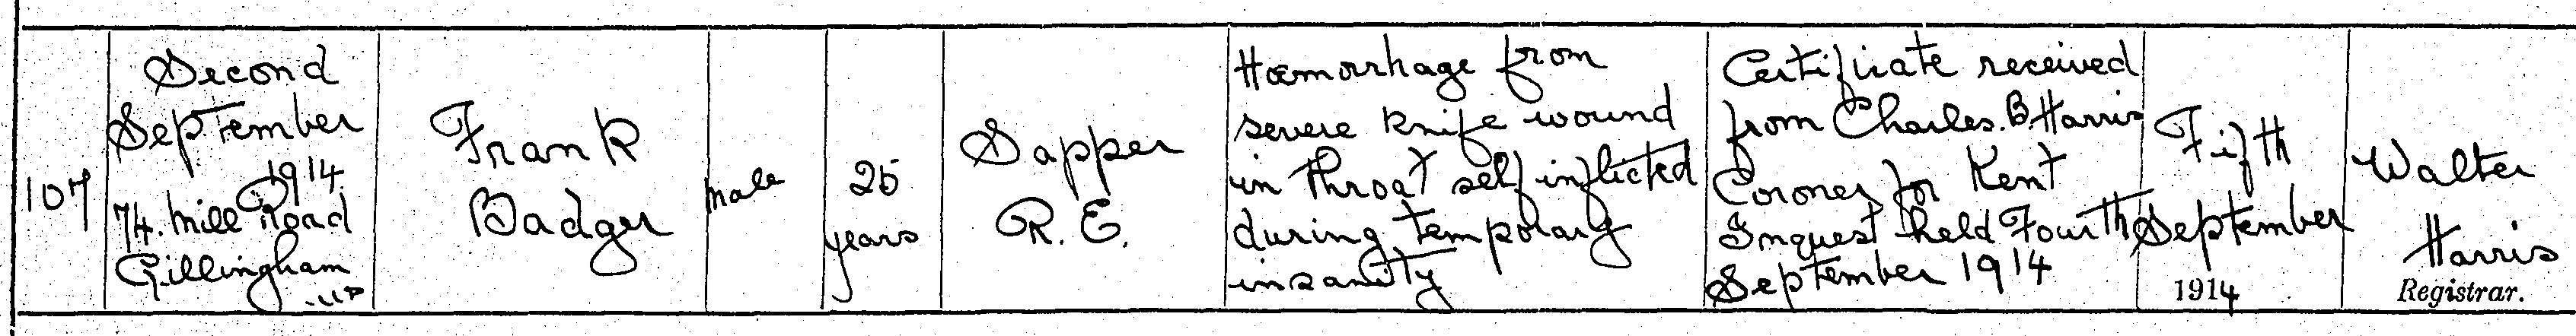 107
Second
September
1914
74. Mill Road
Gillingham
U.D
Frank
Badger
Male
25
years
Sapper
R.E.
Hæmorrhage from
severe knife wound
in throat self inflicted
during temporary
insanity
Certificate received
from Charles. B. Harris
Coroner for Kent
Inquest held Fourth
September 1914
Fifth
September
1914
Walter
Harris
Registrar.